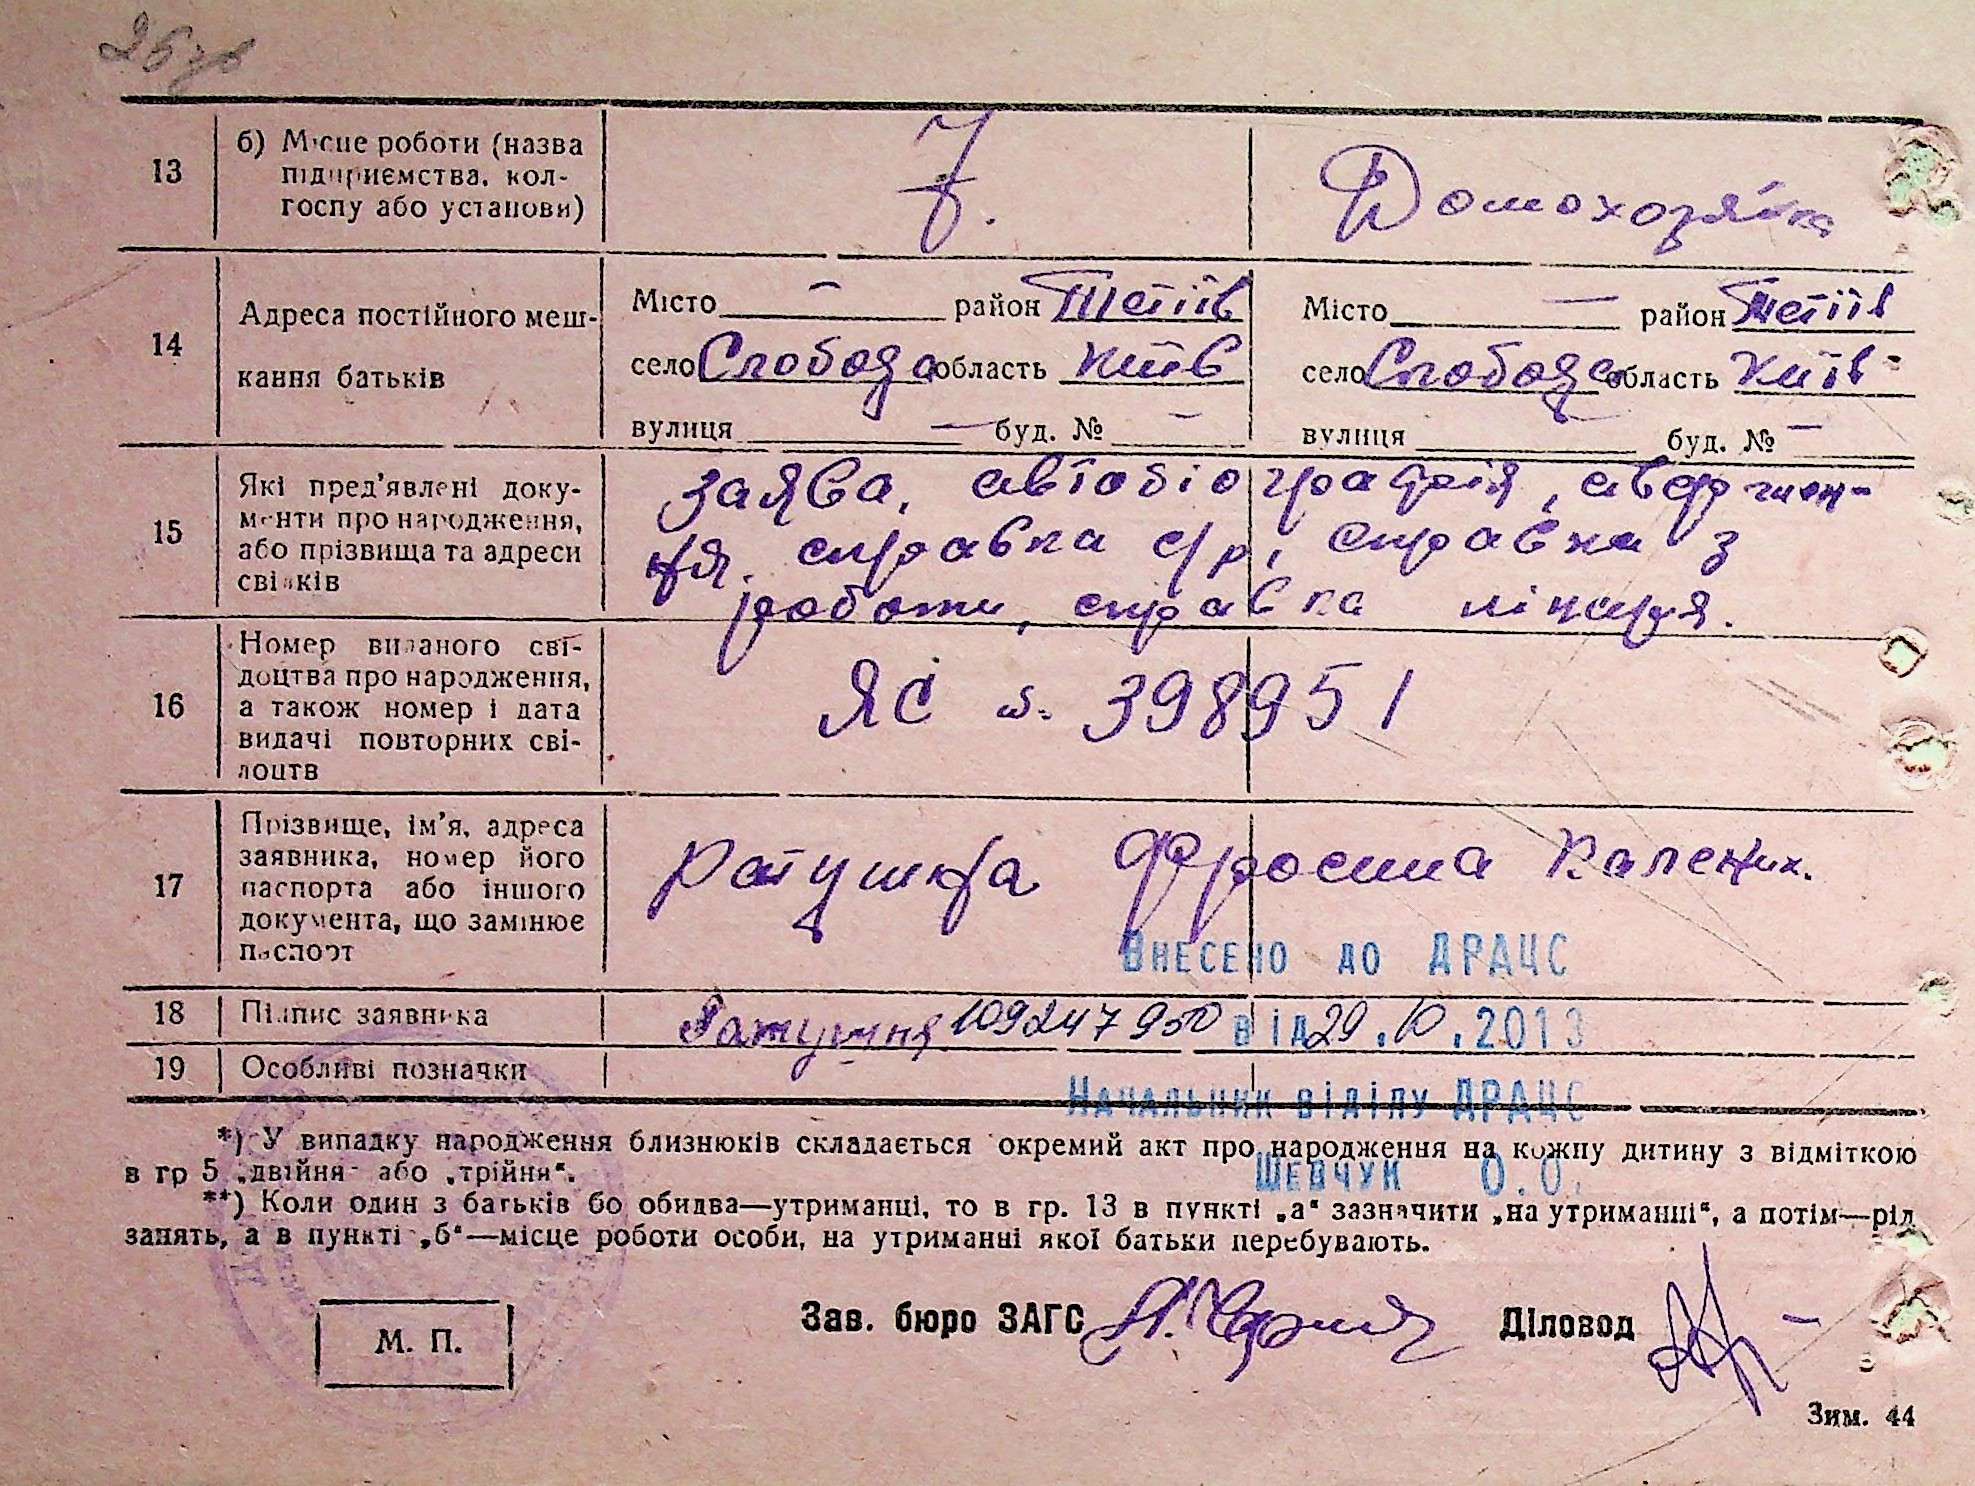 26 зв
13 б) Місце роботи (назва
підприємства, кол-
госпу або установи)
Домохозяйка
14 Адреса постійного меш-
кання батьків
Місто — район Тетіїв
село Слобода область Київ
вулиця — буд. № —
Місто — район Тетіїв
село Слобода область Київ
вулиця буд. № —
15 Які пред'явлені доку-
менти про народження,
або прізвища та адреси
свідків
заява, автобіографія, ствержен-
ня, справка с/р, справка з
роботи, справка лікаря.
16 Номер виданого сві-
доцтва про народження,
а також номер і дата
видачі повторних сві-
доцтв
ЯС 398951
17 Прізвище, ім'я, адреса
заявника, номер його
паспорта або іншого
документа, що замінює
паспорт
Ратушня Фросина Калених.
Внесено до ДРАЦС
18 Підпис заявника
Ратушня 109247950 від 29.10.2013
19 Особливі позначки
Начальник відділу ДРАЦС
*) У випадку народження близнюків складається окремий акт про народження на кожну дитину з відміткою
в гр 5 „двійня" або „трійня".
Шевчук О.О.
**) Коли один з батьків бо обидва—утриманці, то в гр. 13 в пункті „а" зазначити „на утриманні", а потім—рід
занять, а в пункті „б"—місце роботи особи, на утриманні якої батьки перебувають.
М. П.
Зав. бюро ЗАГС
Діловод
Зим. 44